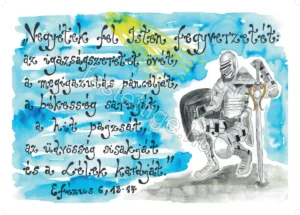 Vegyétek fel Isten fegyverzetét:
az igazságszeretet övét,
a megigazulás páncélját,
a békesség saruját,
a hit pajzsát,
az üdvösség sisakját
és a Lélek kardját."
Efezus 6,13-17